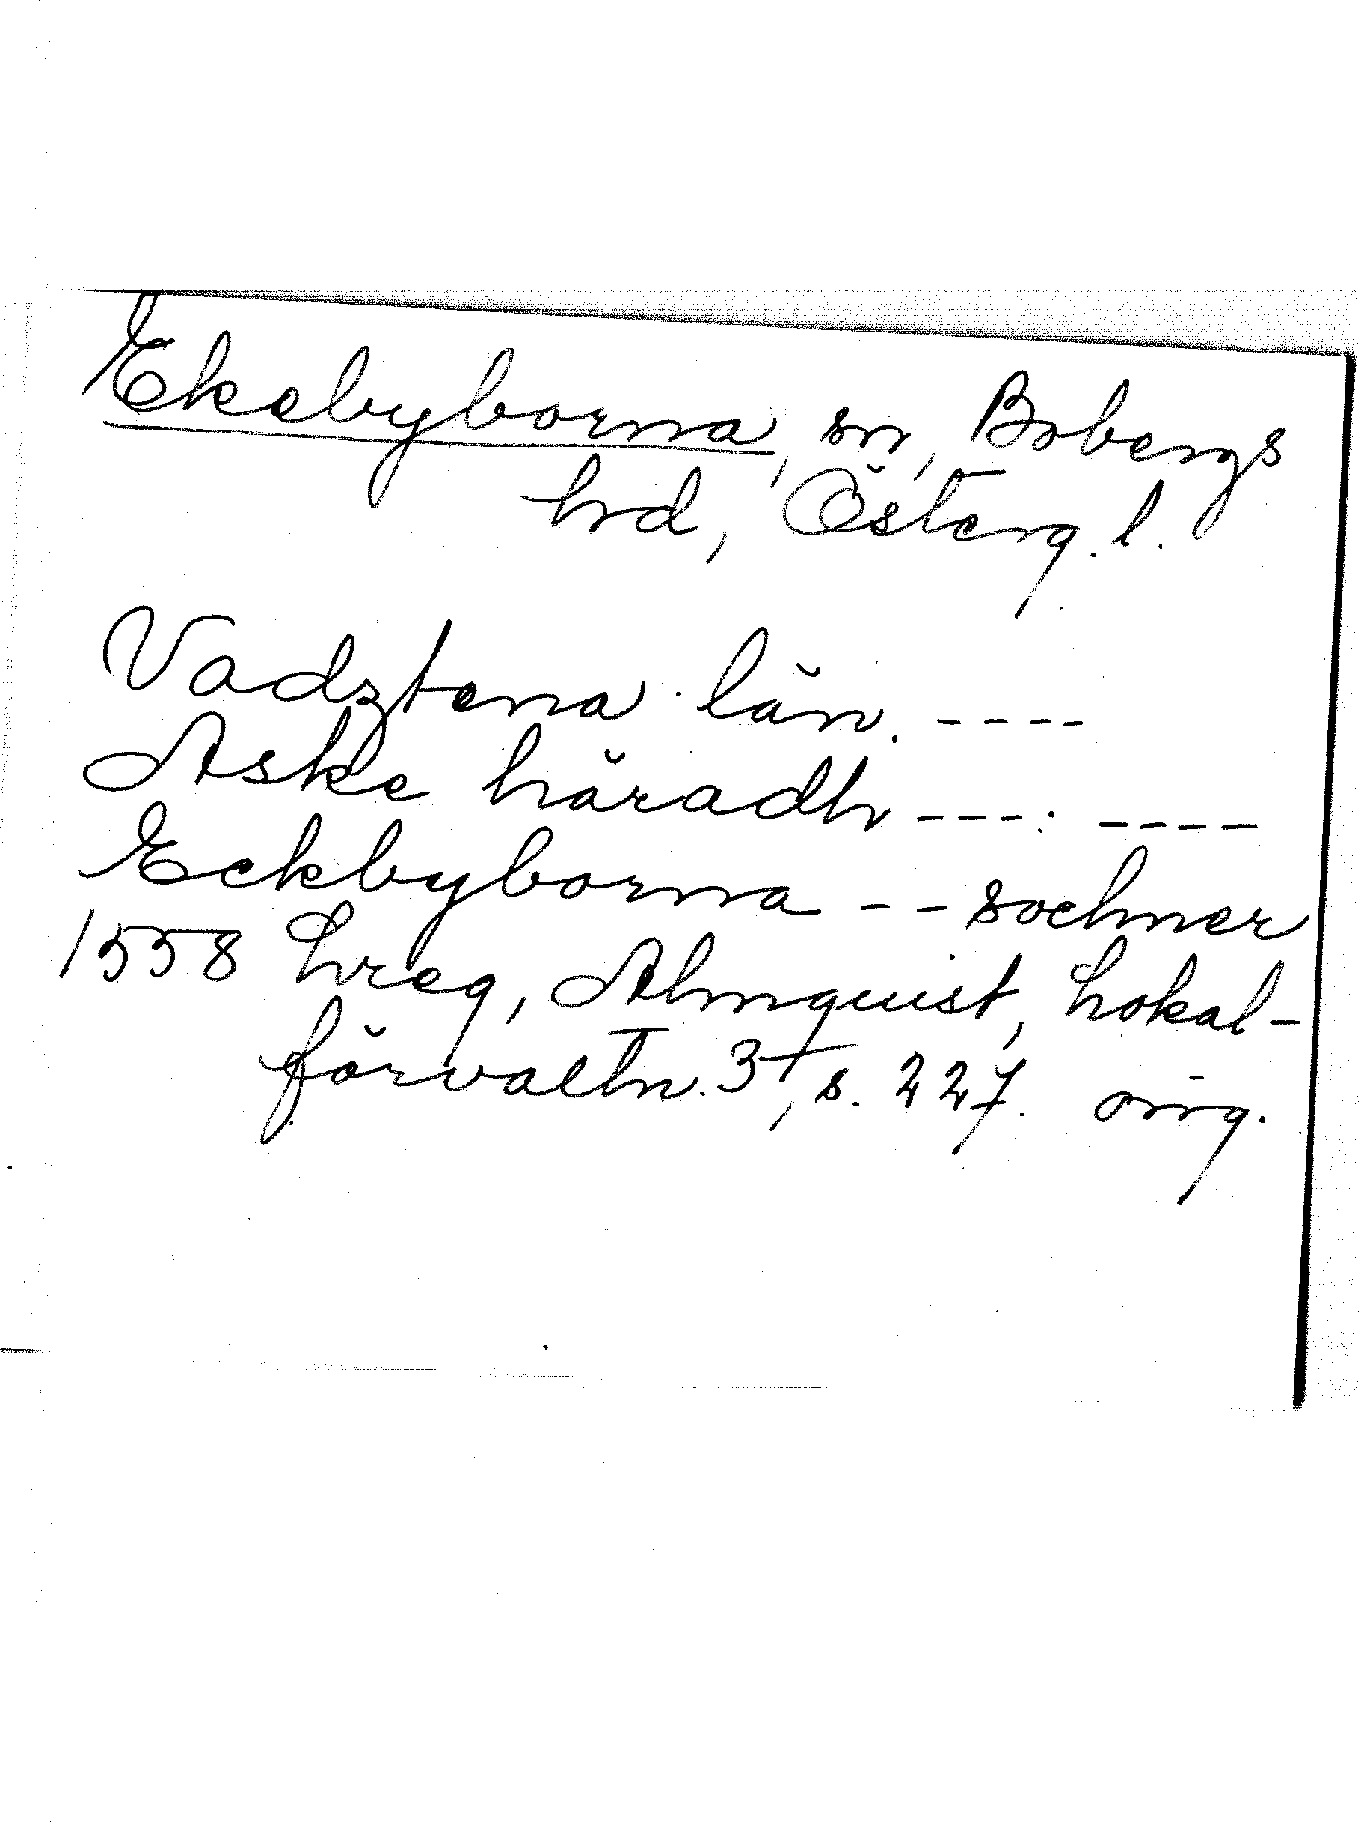 Ekebyborna, sn, Bobergs
hd, Österg. l.
Vadztena län. ----
Aske häradh ---. ----
Eckbyborna -- sochner
1558 Lreg, Almquist, Lokal-
förvaltn. 3, s. 227. orig.